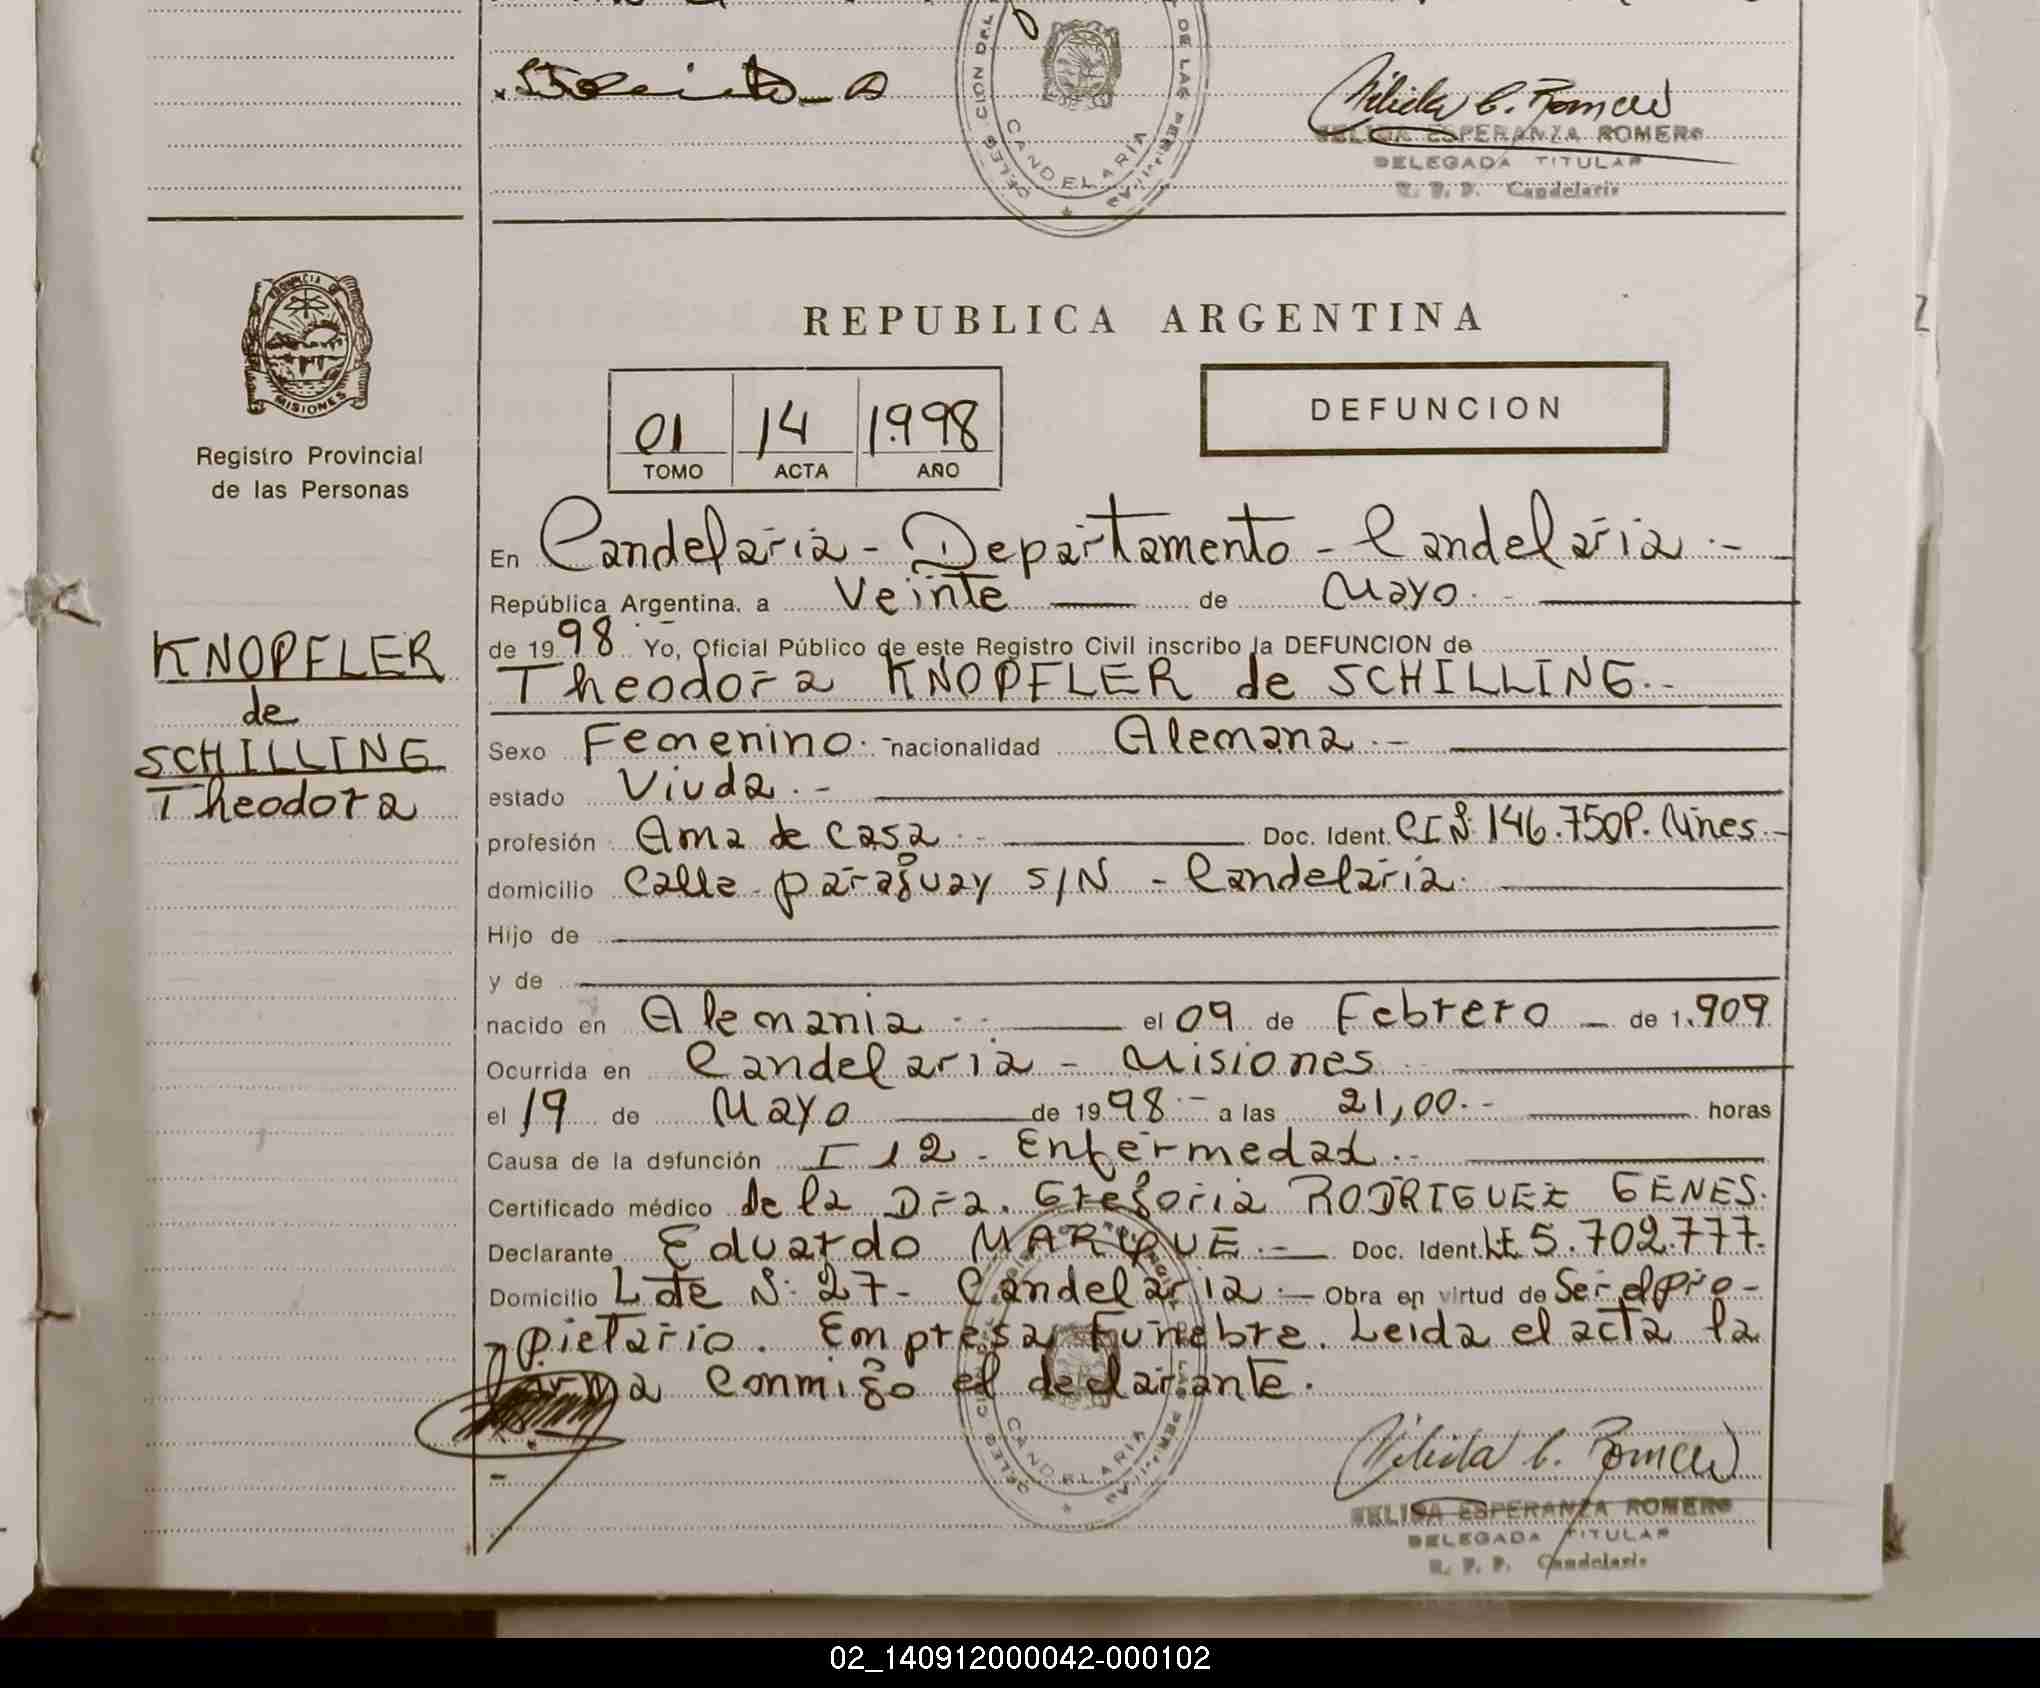 CION DEL
DE LAS PER
DELEG
CANDELARIA
Nelida E. Romero
NELIDA ESPERANZA ROMERO
DELEGADA TITULAR
R. P. P. Candelaria
PROVINCIA DE
MISIONES
Registro Provincial
de las Personas
REPUBLICA ARGENTINA
01 14 1.998
TOMO ACTA AÑO
DEFUNCION
En Candelaria - Departamento - Candelaria.-
República Argentina, a Veinte de Mayo.-
de 1998.- Yo, Oficial Público de este Registro Civil inscribo la DEFUNCION de
Theodora KNOPFLER de SCHILLING.-
KNOPFLER
de
SCHILLING
Theodora
Sexo Femenino.- nacionalidad Alemana.-
estado Viuda.-
profesión Ama de casa.- Doc. Ident. CI Nº 146.750P. Mnes.-
domicilio Calle Paraguay S/N - Candelaria.
Hijo de
y de
nacido en Alemania.- el 09 de Febrero - de 1.909
Ocurrida en Candelaria - Misiones
el 19 de Mayo de 1998.- a las 21,00.- horas
Causa de la defunción I 12 - Enfermedad.-
Certificado médico de la Dra. Gregoria RODRIGUEZ GENES.
Declarante Eduardo MARIQUE.- Doc. Ident. LE 5.702.777.
Domicilio Lote Nº 27 - Candelaria.- Obra en virtud de Ser el pro-
pietario. Empresa Funebre. Leida el acta la
firma conmigo el declarante.
DELEG
CANDELARIA
Nelida E. Romero
NELIDA ESPERANZA ROMERO
DELEGADA TITULAR
R. P. P. Candelaria
02_140912000042-000102